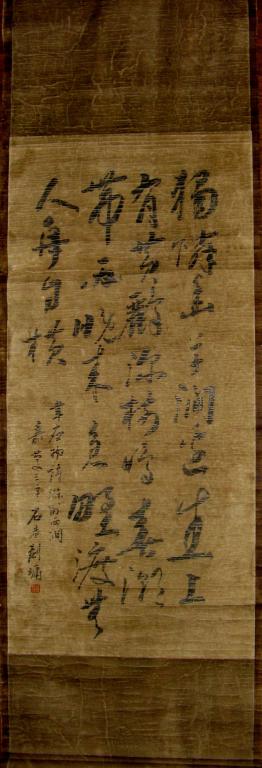 獨憐幽草澗邊生上
有黃鸝深樹鳴春潮
帶雨晚來急野渡無
人舟自橫
韋應物詩滁州西澗
嘉慶三年石菴劉墉